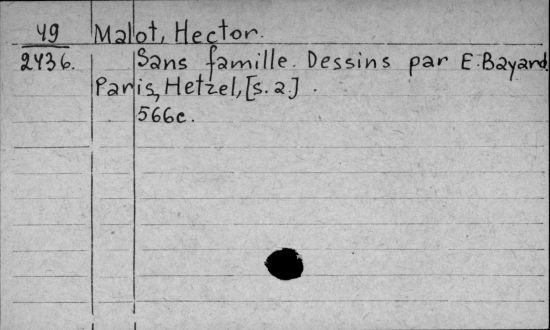 49 Malot, Hector.
2436. Sans famille. Dessins par E. Bayard.
Paris, Hetzel, [s.a.] .
566c.